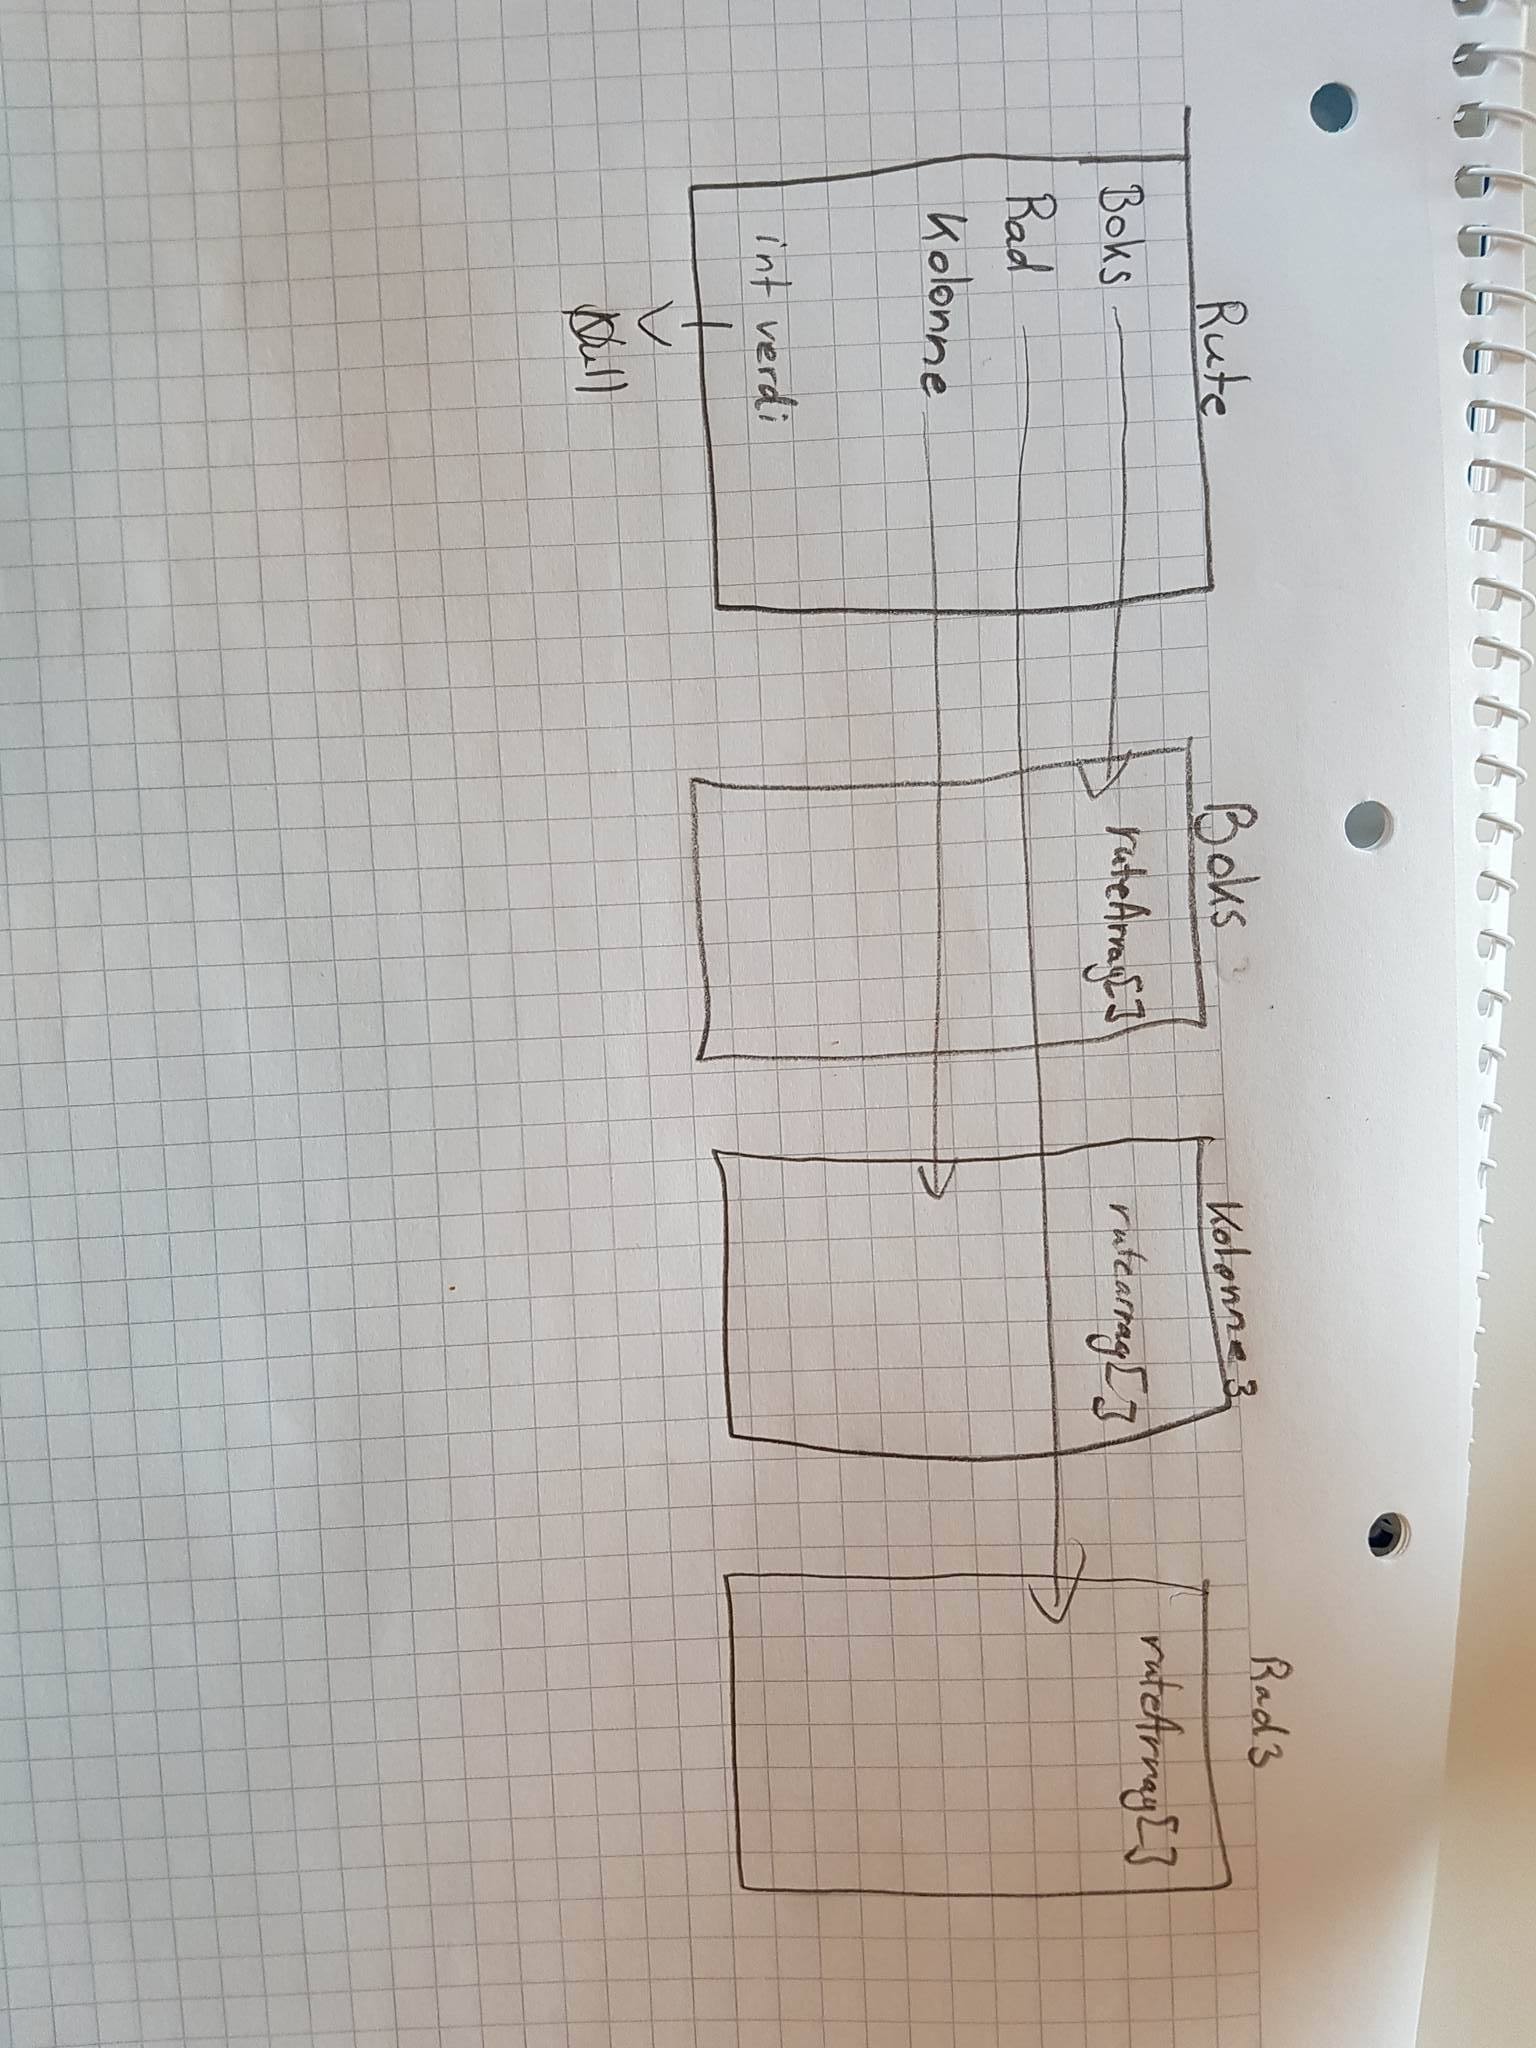 Rute
Boks
Rad
Kolonne
int verdi
Null
Boks
ruteArray[]
Kolonne 3
rutearray[]
Rad 3
ruteArray[]